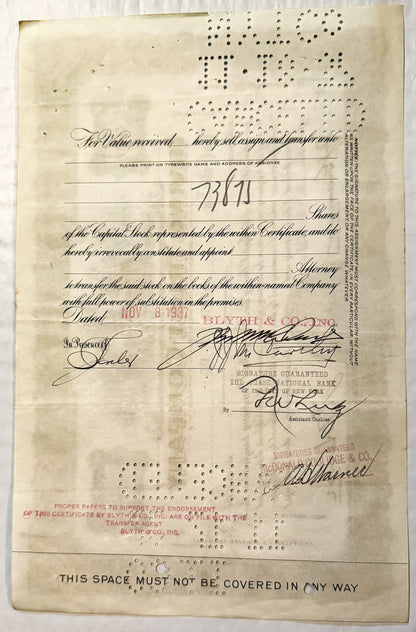 For Value received, hereby sell, assign and transfer unto
PLEASE PRINT OR TYPEWRITE NAME AND ADDRESS OF ASSIGNEE
Shares
of the Capital Stock represented by the within Certificate, and do
hereby irrevocably constitute and appoint
Attorney
to transfer the said stock on the books of the within-named Company
with full power of substitution in the premises.
Dated, NOV 8 1937
BLYTH & CO., INC.
In Presence of
SIGNATURE GUARANTEED
THE CHASE NATIONAL BANK
OF THE CITY OF NEW YORK
By
Assistant Cashier
SIGNATURES GUARANTEED
McDONALD COOLIDGE & CO.
PROPER PAPERS TO SUPPORT THE ENDORSEMENT
OF THIS CERTIFICATE BY BLYTH & CO., INC. ARE ON FILE WITH THE
TRANSFER AGENT
BLYTH & CO., INC.
THIS SPACE MUST NOT BE COVERED IN ANY WAY
NOTICE: THE SIGNATURE TO THIS ASSIGNMENT MUST CORRESPOND WITH THE NAME
AS WRITTEN UPON THE FACE OF THE CERTIFICATE, IN EVERY PARTICULAR WITHOUT
ALTERATION OR ENLARGEMENT OR ANY CHANGE WHATEVER.